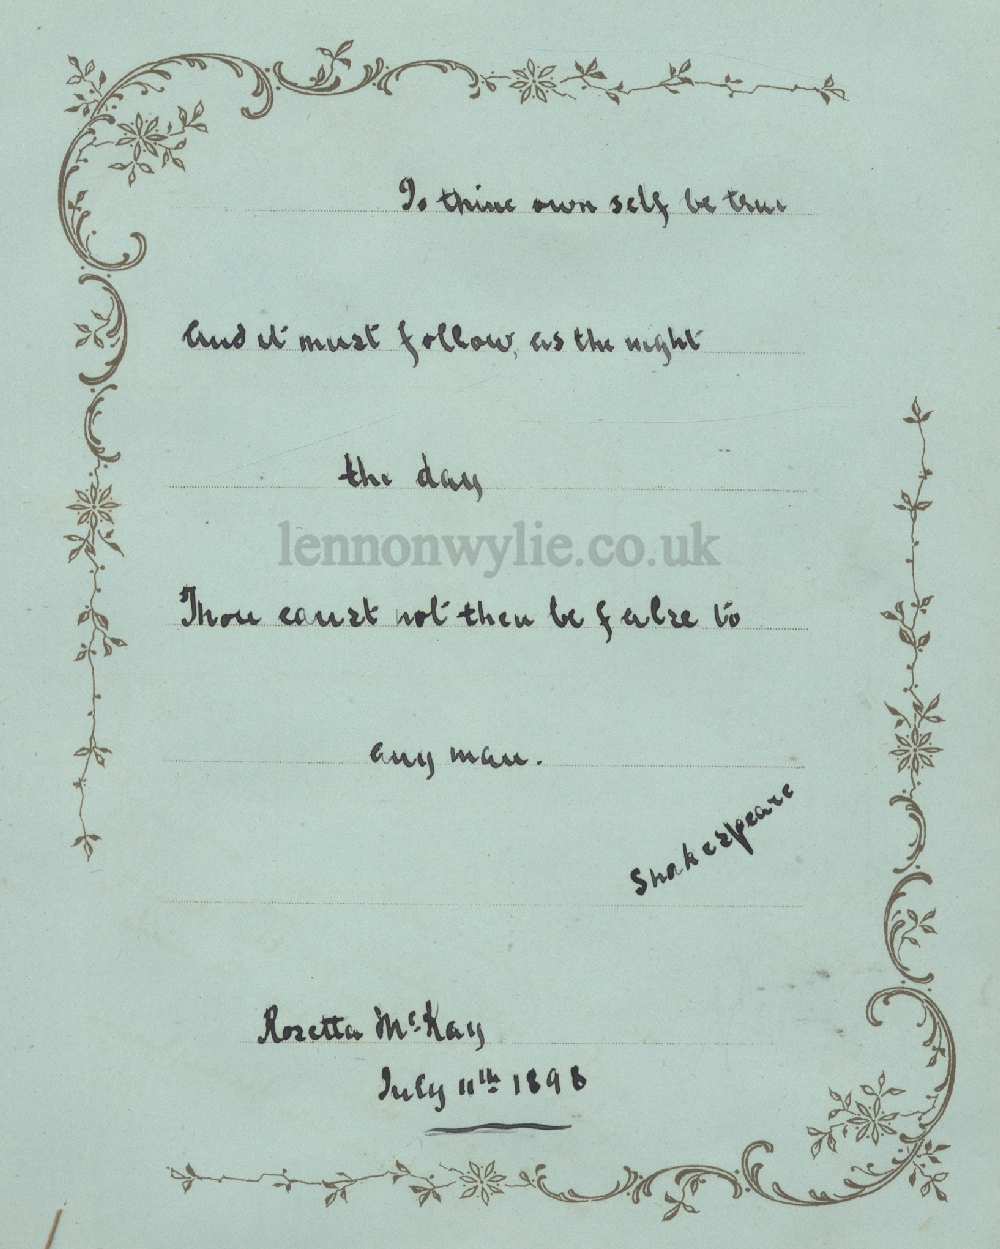 To thine own self be true
And it must follow, as the night
the day
lennonwylie.co.uk
Thou canst not then be false to
any man.
Shakespeare
Rosetta McKay
July 11th 1898